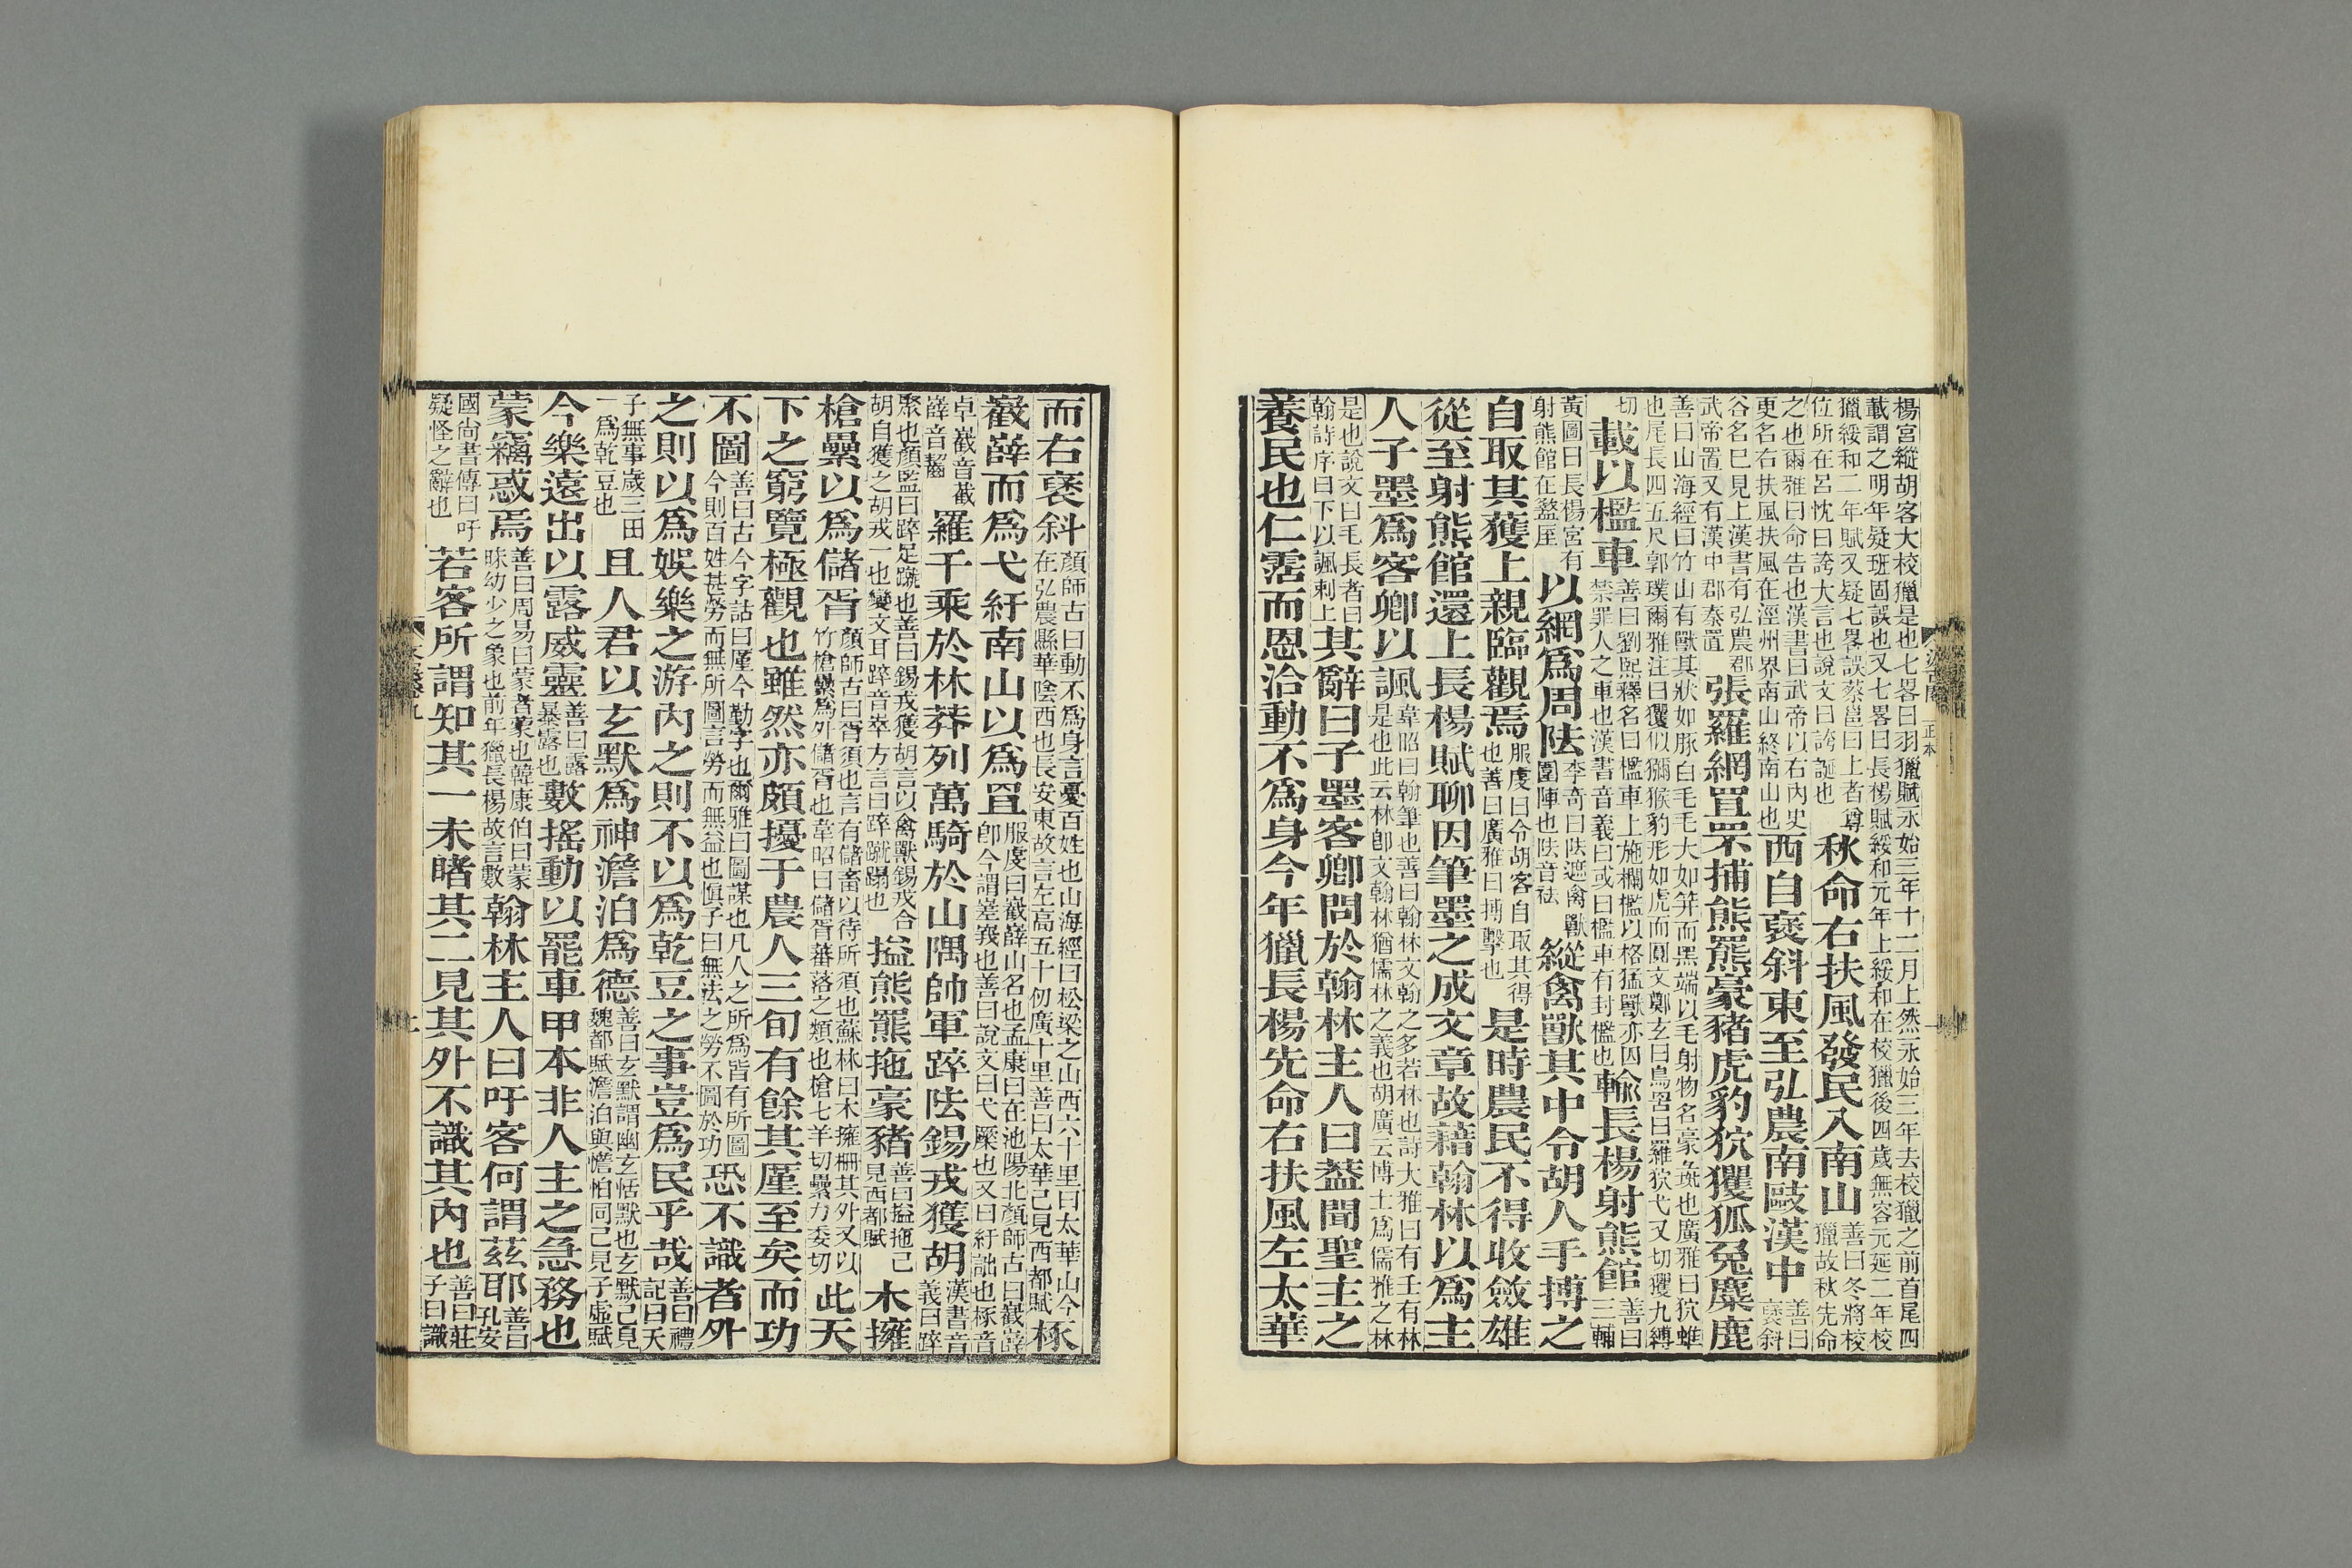 楊宮縱胡客大校獵是也七畧曰羽獵賦永始三年十二月上然永始三年去校獵之前首尾四
載謂之明年疑班固誤也又七畧曰長楊賦綏和元年上綏和在校獵後四歲無容元延二年校
獵綏和二年賦又疑七畧誤蔡邕曰上者尊
位所在呂忱曰誇大言也說文曰誇誕也
秋命右扶風發民入南山
善曰冬將校
獵故秋先命
之也爾雅曰命告也漢書曰武帝以右內史
更名右扶風扶風在涇州界南山終南山也
西自褒斜東至弘農南敺漢中
善曰
褒斜
谷名已見上漢書有弘農郡
武帝置又有漢中郡秦置
張羅網罝罘捕熊羆豪豬虎豹狖玃狐兔麋鹿
善曰山海經曰竹山有獸其狀如豚白毛毛大如笄而黑端以毛射物名豪彘也廣雅曰狖蜼
也尾長四五尺郭璞爾雅注曰玃似獼猴豹形如虎而圓文鄭玄曰鳥罟曰羅狖弋又切玃九縛
切
載以檻車
善曰劉熙釋名曰檻車上施欄檻以格猛獸亦囚
禁罪人之車也漢書音義曰或曰檻車有封檻也
輸長楊射熊館
善曰
三輔
黃圖曰長楊宮有
射熊館在盩厔
以網爲周阹
李奇曰阹遮禽獸
圍陣也阹音祛
縱禽獸其中令胡人手搏之
自取其獲上親臨觀焉
服虔曰令胡客自取其得
也善曰廣雅曰搏擊也
是時農民不得收斂雄
從至射熊館還上長楊賦聊因筆墨之成文章故藉翰林以爲主
人子墨爲客卿以諷
韋昭曰翰筆也善曰翰林文翰之多若林也詩大雅曰有壬有林
是也此云林卽文翰林猶儒林之義也胡廣云博士爲儒雅之林
是也說文曰毛長者曰
翰詩序曰下以諷刺上
其辭曰子墨客卿問於翰林主人曰蓋聞聖主之
養民也仁霑而恩洽動不爲身今年獵長楊先命右扶風左太華
汲古閣
正本
而右褒斜
顏師古曰動不爲身言憂百姓也山海經曰松梁之山西六十里曰太華山今
在弘農縣華陰西也長安東故言左高五十仞廣十里善曰太華已見西都賦
椓
嶻嶭而爲弋紆南山以爲罝
服虔曰嶻嶭山名也孟康曰在池陽北顏師古曰嶻嶭
卽今謂嵳峩也善曰說文曰弋橜也又曰紆詘也椓音
卓嶻音截
嶭音齧
羅千乘於林莽列萬騎於山隅帥軍踤阹錫戎獲胡
漢書音
義曰踤
聚也顏監曰踤足蹴也善曰錫戎獲胡言以禽獸錫戎合
胡自獲之胡戎一也變文耳踤音萃方言曰踤蹴蹋也
搤熊羆拖豪豬
善曰搤拖已
見西都賦
木擁
槍纍以爲儲胥
顏師古曰胥須也言有儲畜以待所須也蘇林曰木擁柵其外又以
竹槍纍爲外儲胥也韋昭曰儲胥蕃落之類也槍七羊切纍力委切
此天
下之窮覽極觀也雖然亦頗擾于農人三旬有餘其廑至矣而功
不圖
善曰古今字詁曰廑今勤字也爾雅曰圖謀也凡人之所爲皆有所圖
今則百姓甚勞而無所圖言勞而無益也愼子曰無法之勞不圖於功
恐不識者外
之則以爲娛樂之游內之則不以爲乾豆之事豈爲民乎哉
善曰禮
記曰天
子無事歲三田
一爲乾豆也
且人君以玄默爲神澹泊爲德
善曰玄默謂幽玄恬默也玄默已見
魏都賦澹泊與憺怕同已見子虛賦
今樂遠出以露威靈
善曰露
暴露也
數搖動以罷車甲本非人主之急務也
蒙竊惑焉
善曰周易曰蒙者蒙也韓康伯曰蒙
昧幼少之象也前年獵長楊故言數
翰林主人曰吁客何謂茲耶
善曰
孔安
國尚書傳曰吁
疑怪之辭也
若客所謂知其一未睹其二見其外不識其內也
善曰莊
子曰識